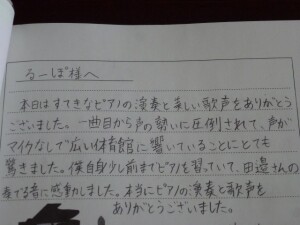 るーぽ様へ
本日はすてきなピアノの演奏と美しい歌声をありがとう
ございました。一曲目から声の勢いに圧倒されて、声が
マイクなしで広い体育館に響いていることにとても
驚きました。僕自身少し前までピアノを習っていて、田邉さんの
奏でる音に感動しました。本当にピアノの演奏と歌声を
ありがとうございました。